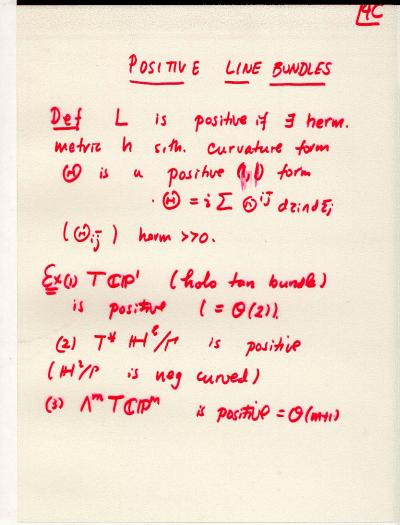 14C
POSITIVE LINE BUNDLES
Def L is positive if ∃ herm.
metric h s.th. curvature form
Ⓗ is a positive (1,1) form
· Ⓗ = i Σ Ⓗ^{ij̄} dz_i n d z̄_j
(Ⓗ_{ij̄}) herm >>0.
Ex(1) T ℂℙ¹ (holo tan bundle)
is positive (= O(2)).
(2) T* ℍ²/Γ is positive
(ℍ²/Γ is neg curved)
(3) Λ^m T ℂℙ^m is positive = O(m+1)